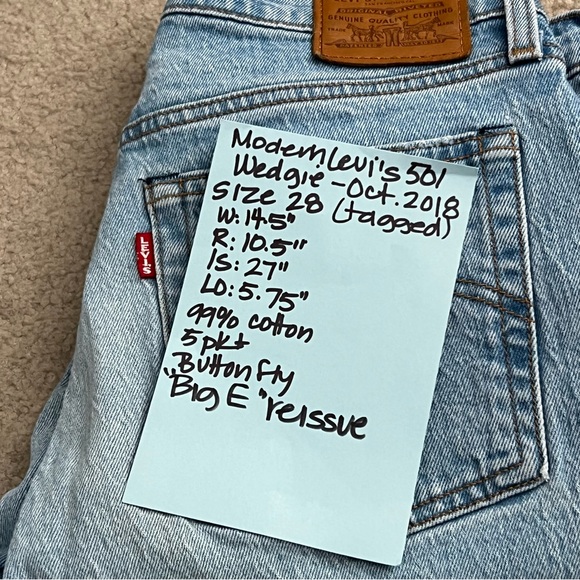 ORIGINAL RIVETED
GENUINE QUALITY CLOTHING
TRADE MARK
LEVI'S
Modern Levi's 501
Wedgie - Oct. 2018
Size 28 (tagged)
W: 14.5"
R: 10.5"
IS: 27"
LO: 5.75"
99% cotton
5 pkt
Button fly
"Big E" reissue